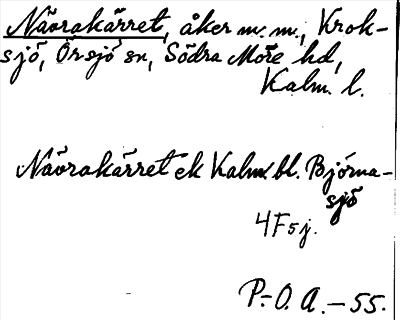 Nävrakärret, åker m.m., Krok-
sjö, Örsjö sn, Södra Möre hd,
Kalm. l.
Nävrakärret ek Kalm. bl. Björna-
sjö
4F5j.
P.-O. A. - 55.